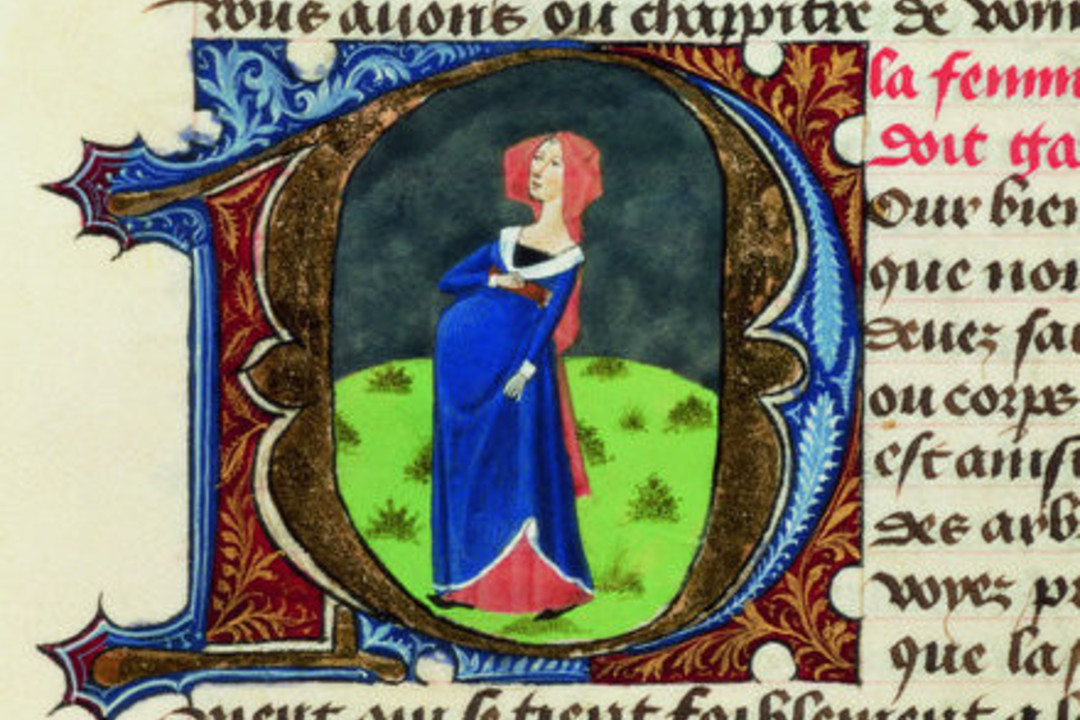 vous auons ou chappitre de
la femm
doit
Our bien
que
deuez sa
ou corps
est ainsi
des arb
voyez
que la
qui se tient foiblement a